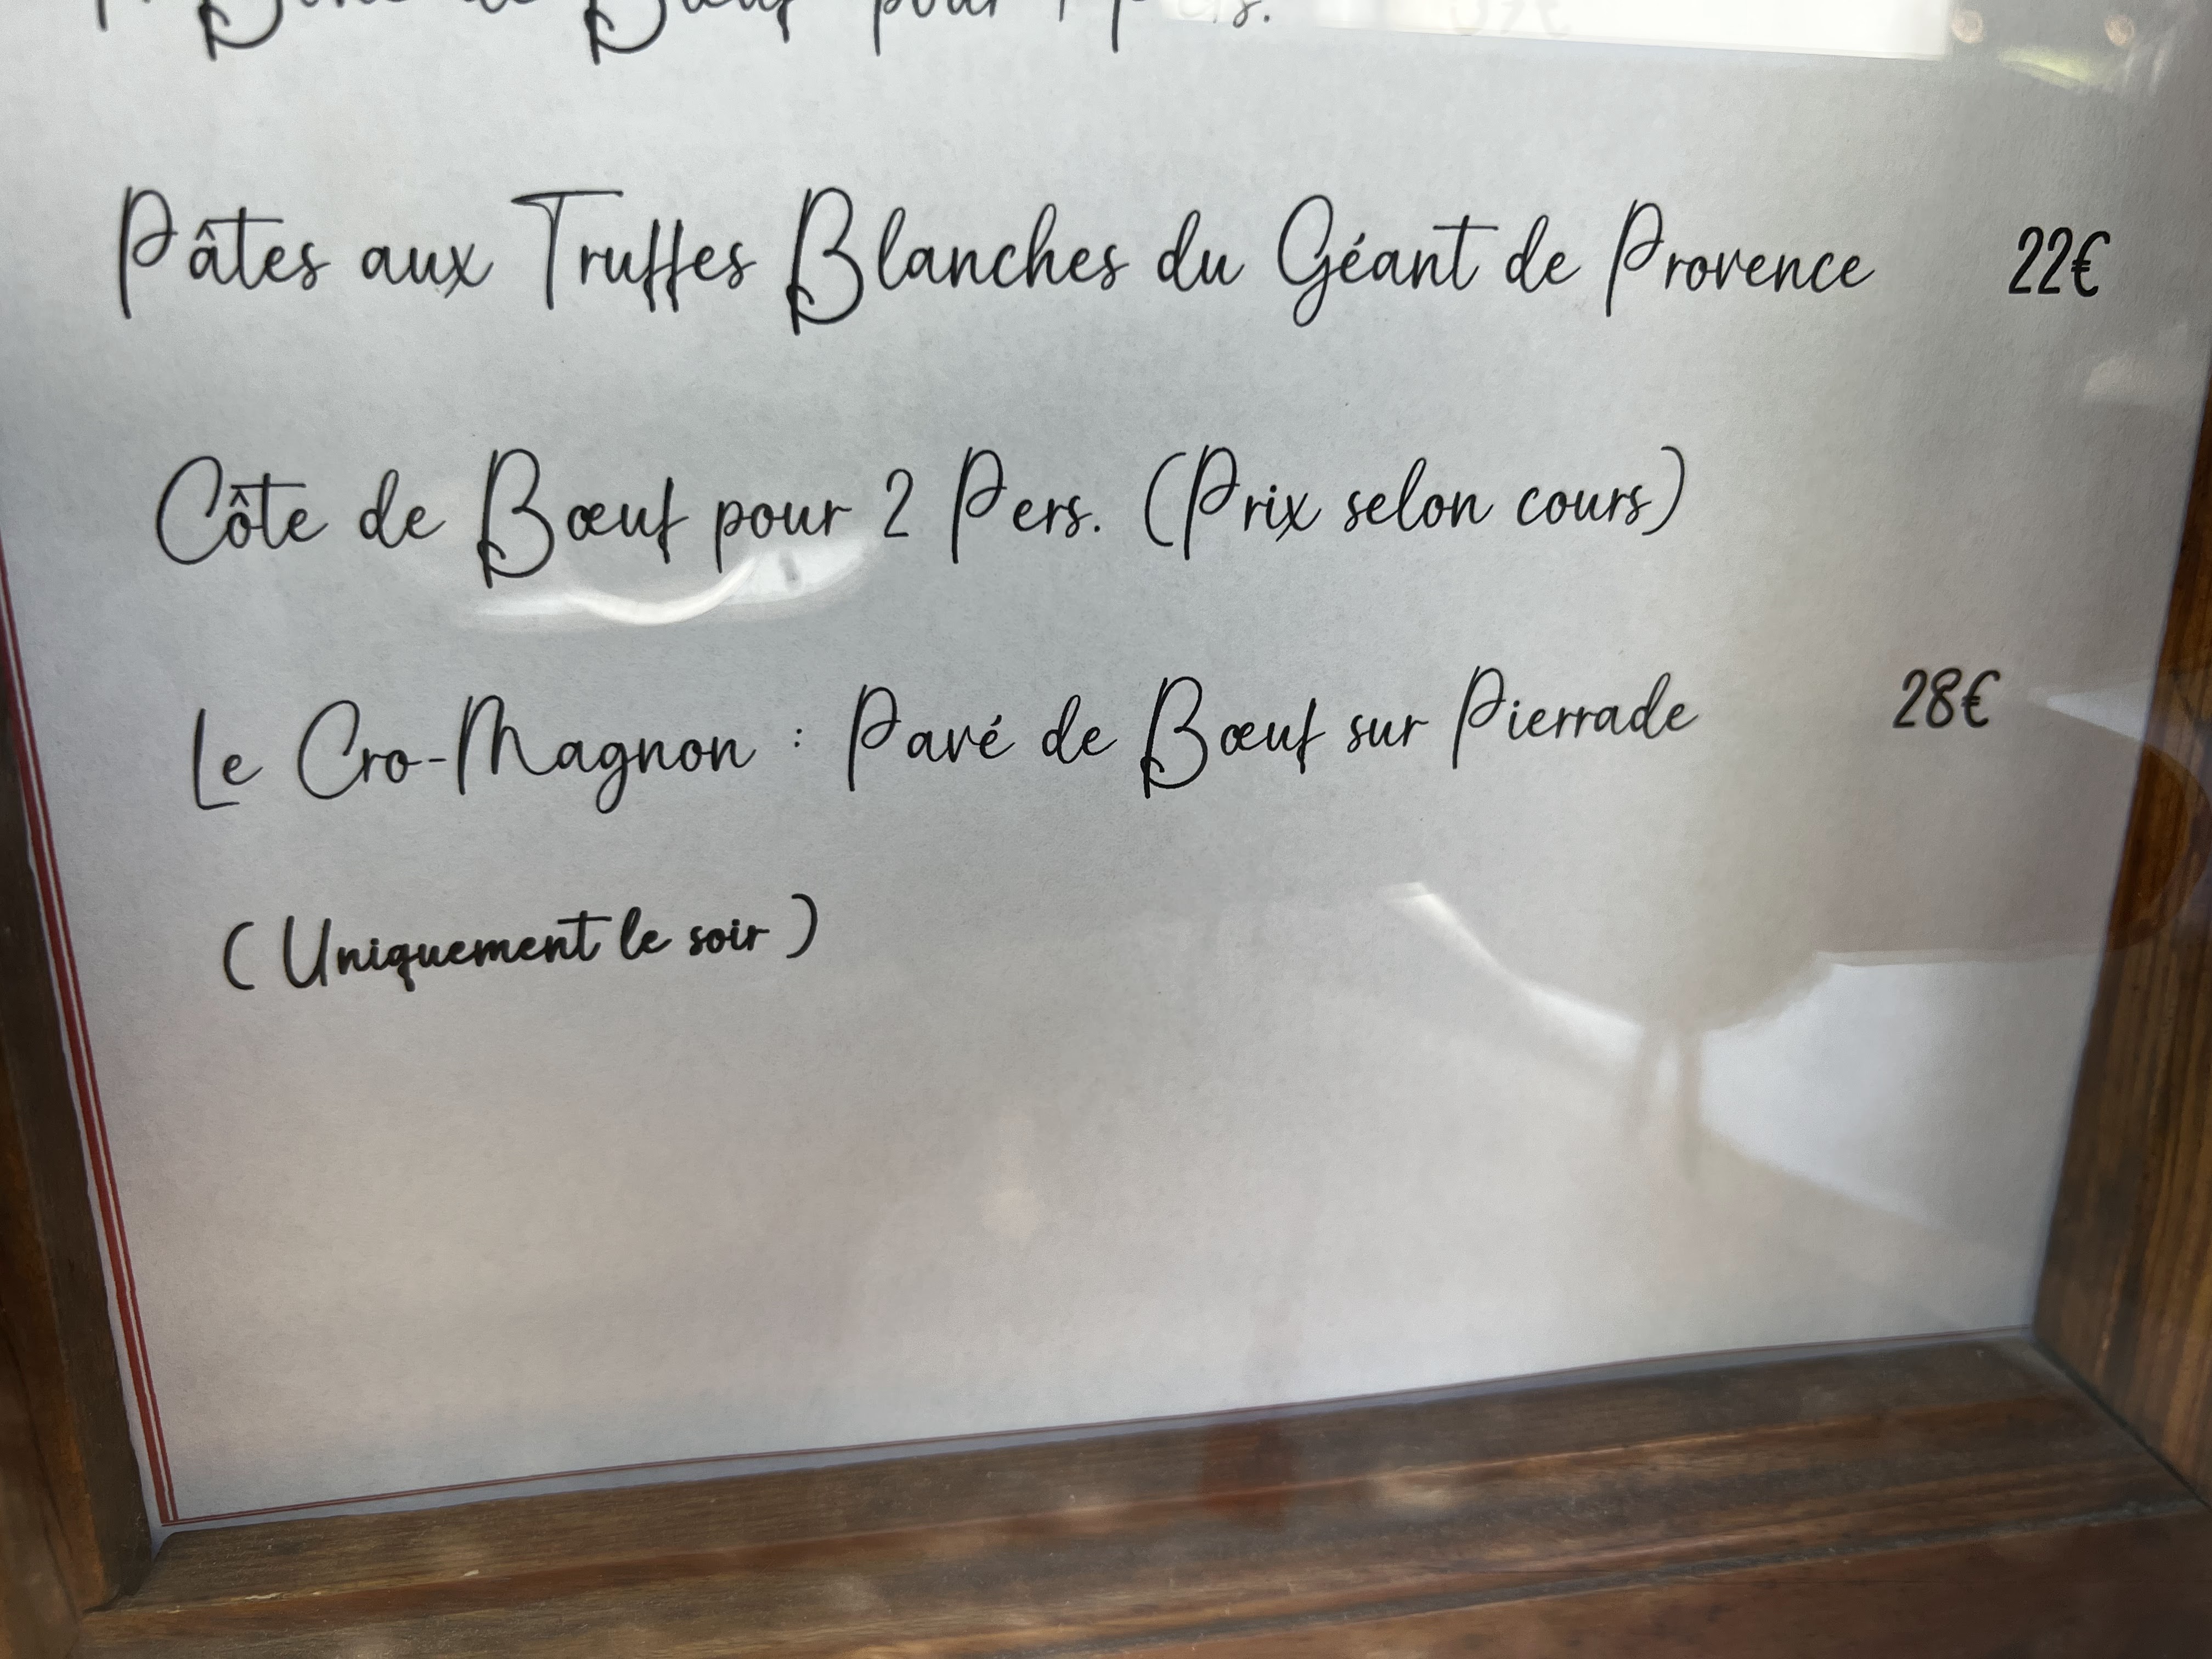 de Bœuf pour
Pâtes aux Truffes Blanches du Géant de Provence 22€
Côte de Bœuf pour 2 Pers. (Prix selon cours)
Le Cro-Magnon : Pavé de Bœuf sur Pierrade 28€
(Uniquement le soir)